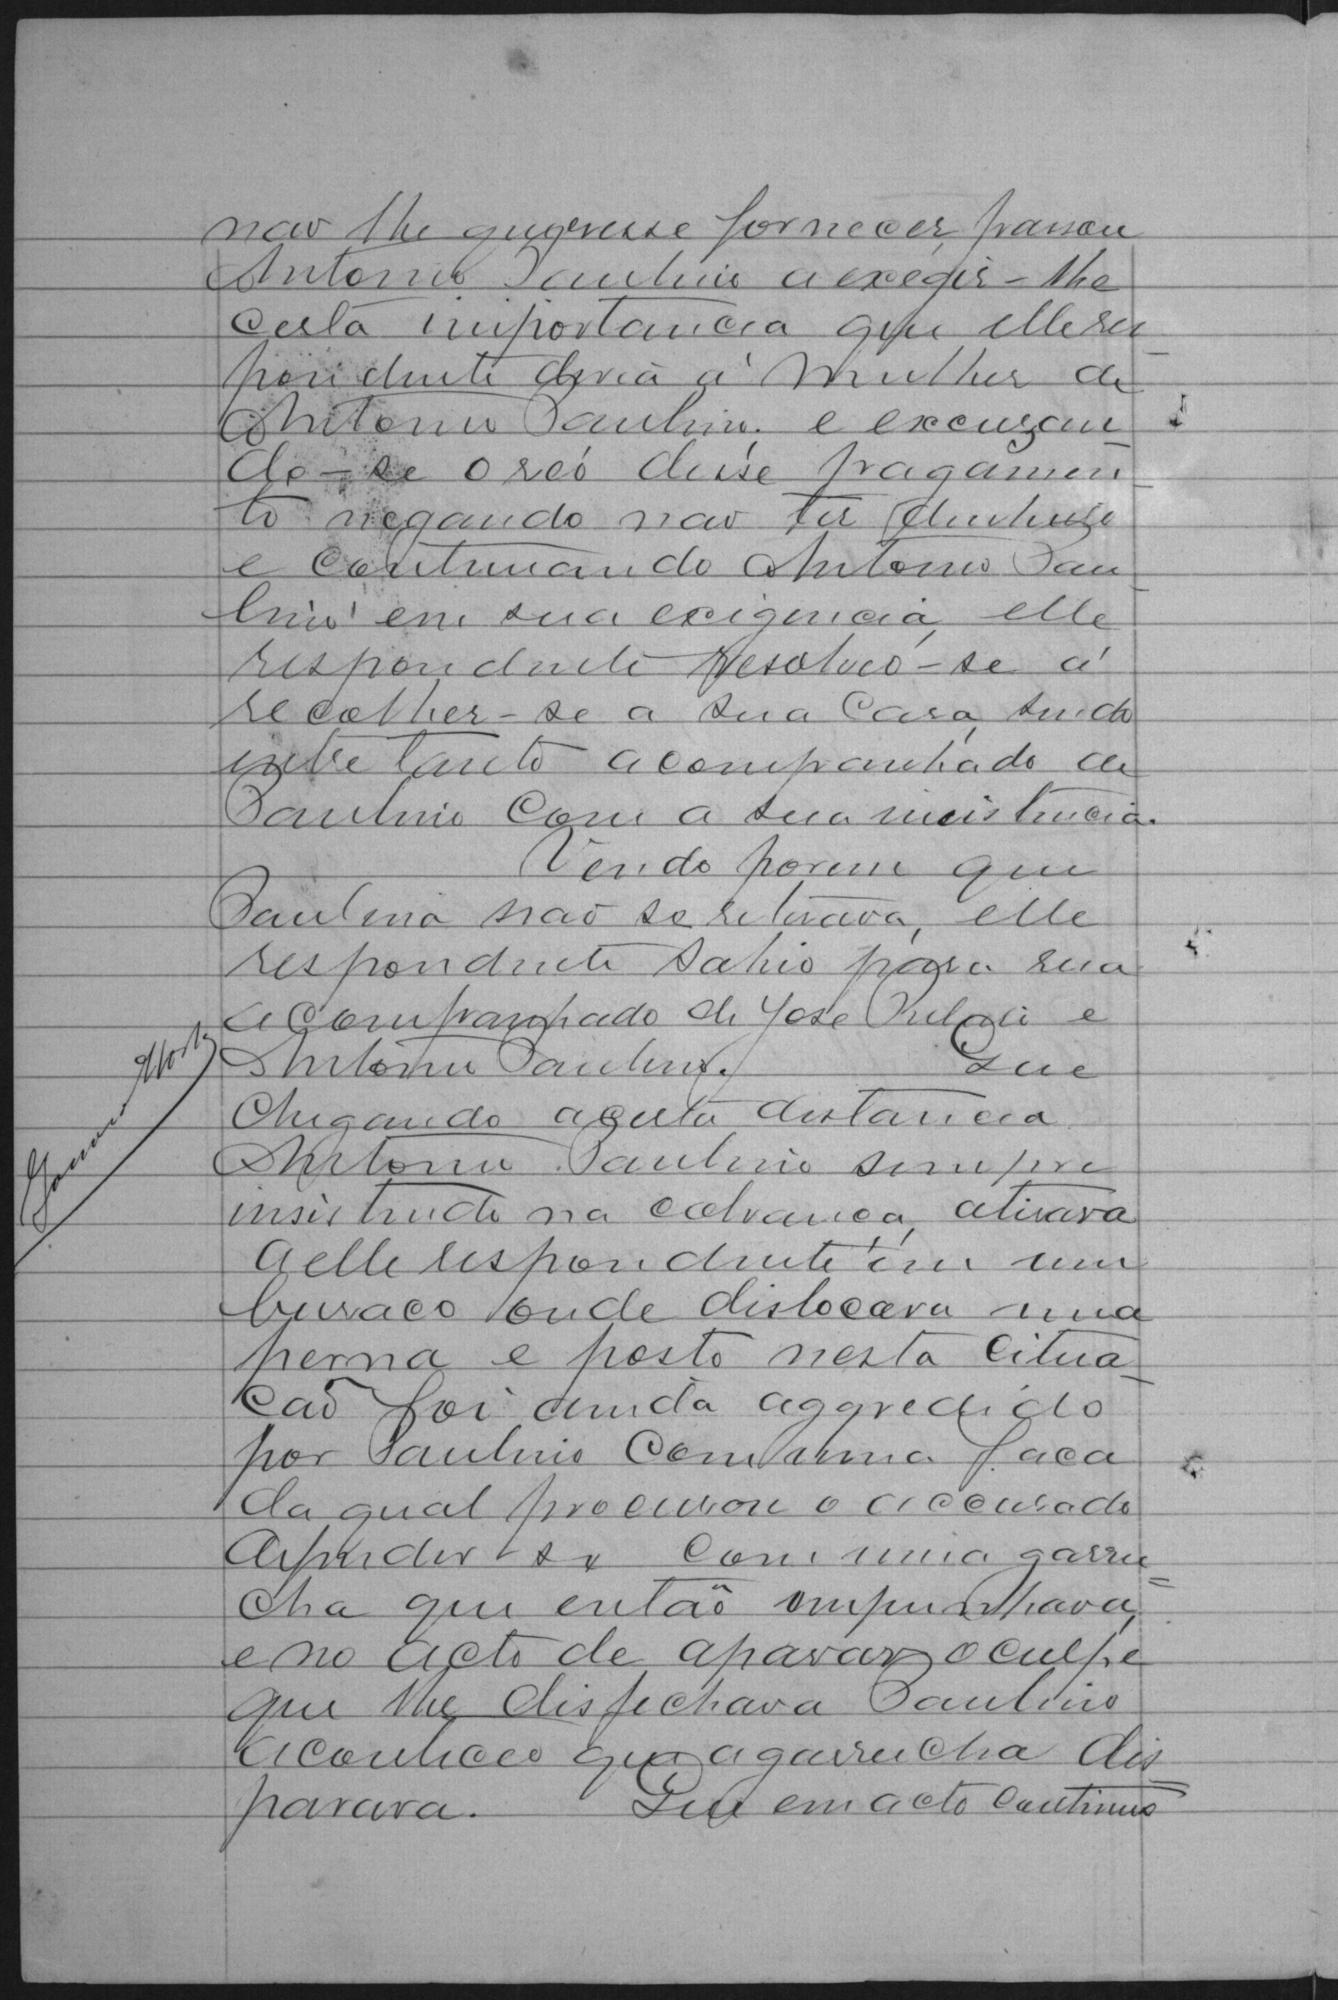 nao lhe quizesse fornecer, passou
Antonio Paulino a exegir-lhe
certa importancia que elle res
pondente devia á mulher de
Antonio Paulino. e excuzan
do-se o reó desse pagamen
to negando nao ter dinheiro
e continuando Antonio Pau
lino em sua exigencia, elle
respondente resolveo-se á
recolher-se a sua casa, sendo
entre tanto acompanhado de
Paulino com a sua incistencia.
Vendo porem que
Paulino naõ se retirava, elle
respondente sahio para rua
acompanhado de José e
Antonio Paulino. Que
chegando a certa distancia
Antonio Paulino sempre
insistindo na cobrança, atirara
a elle respondente em um
buraco onde dislocara uma
perna e posto nesta citua
caõ foi ainda aggredido
por Paulino com uma faca
da qual procurou o accusado
defender se com uma garru
cha que entaõ empunhava,
e no acto de aparar o culpe
que lhe disfechava Paulino
aconteceo que a garrucha dis
parara. Que em acto continuo
Gomes